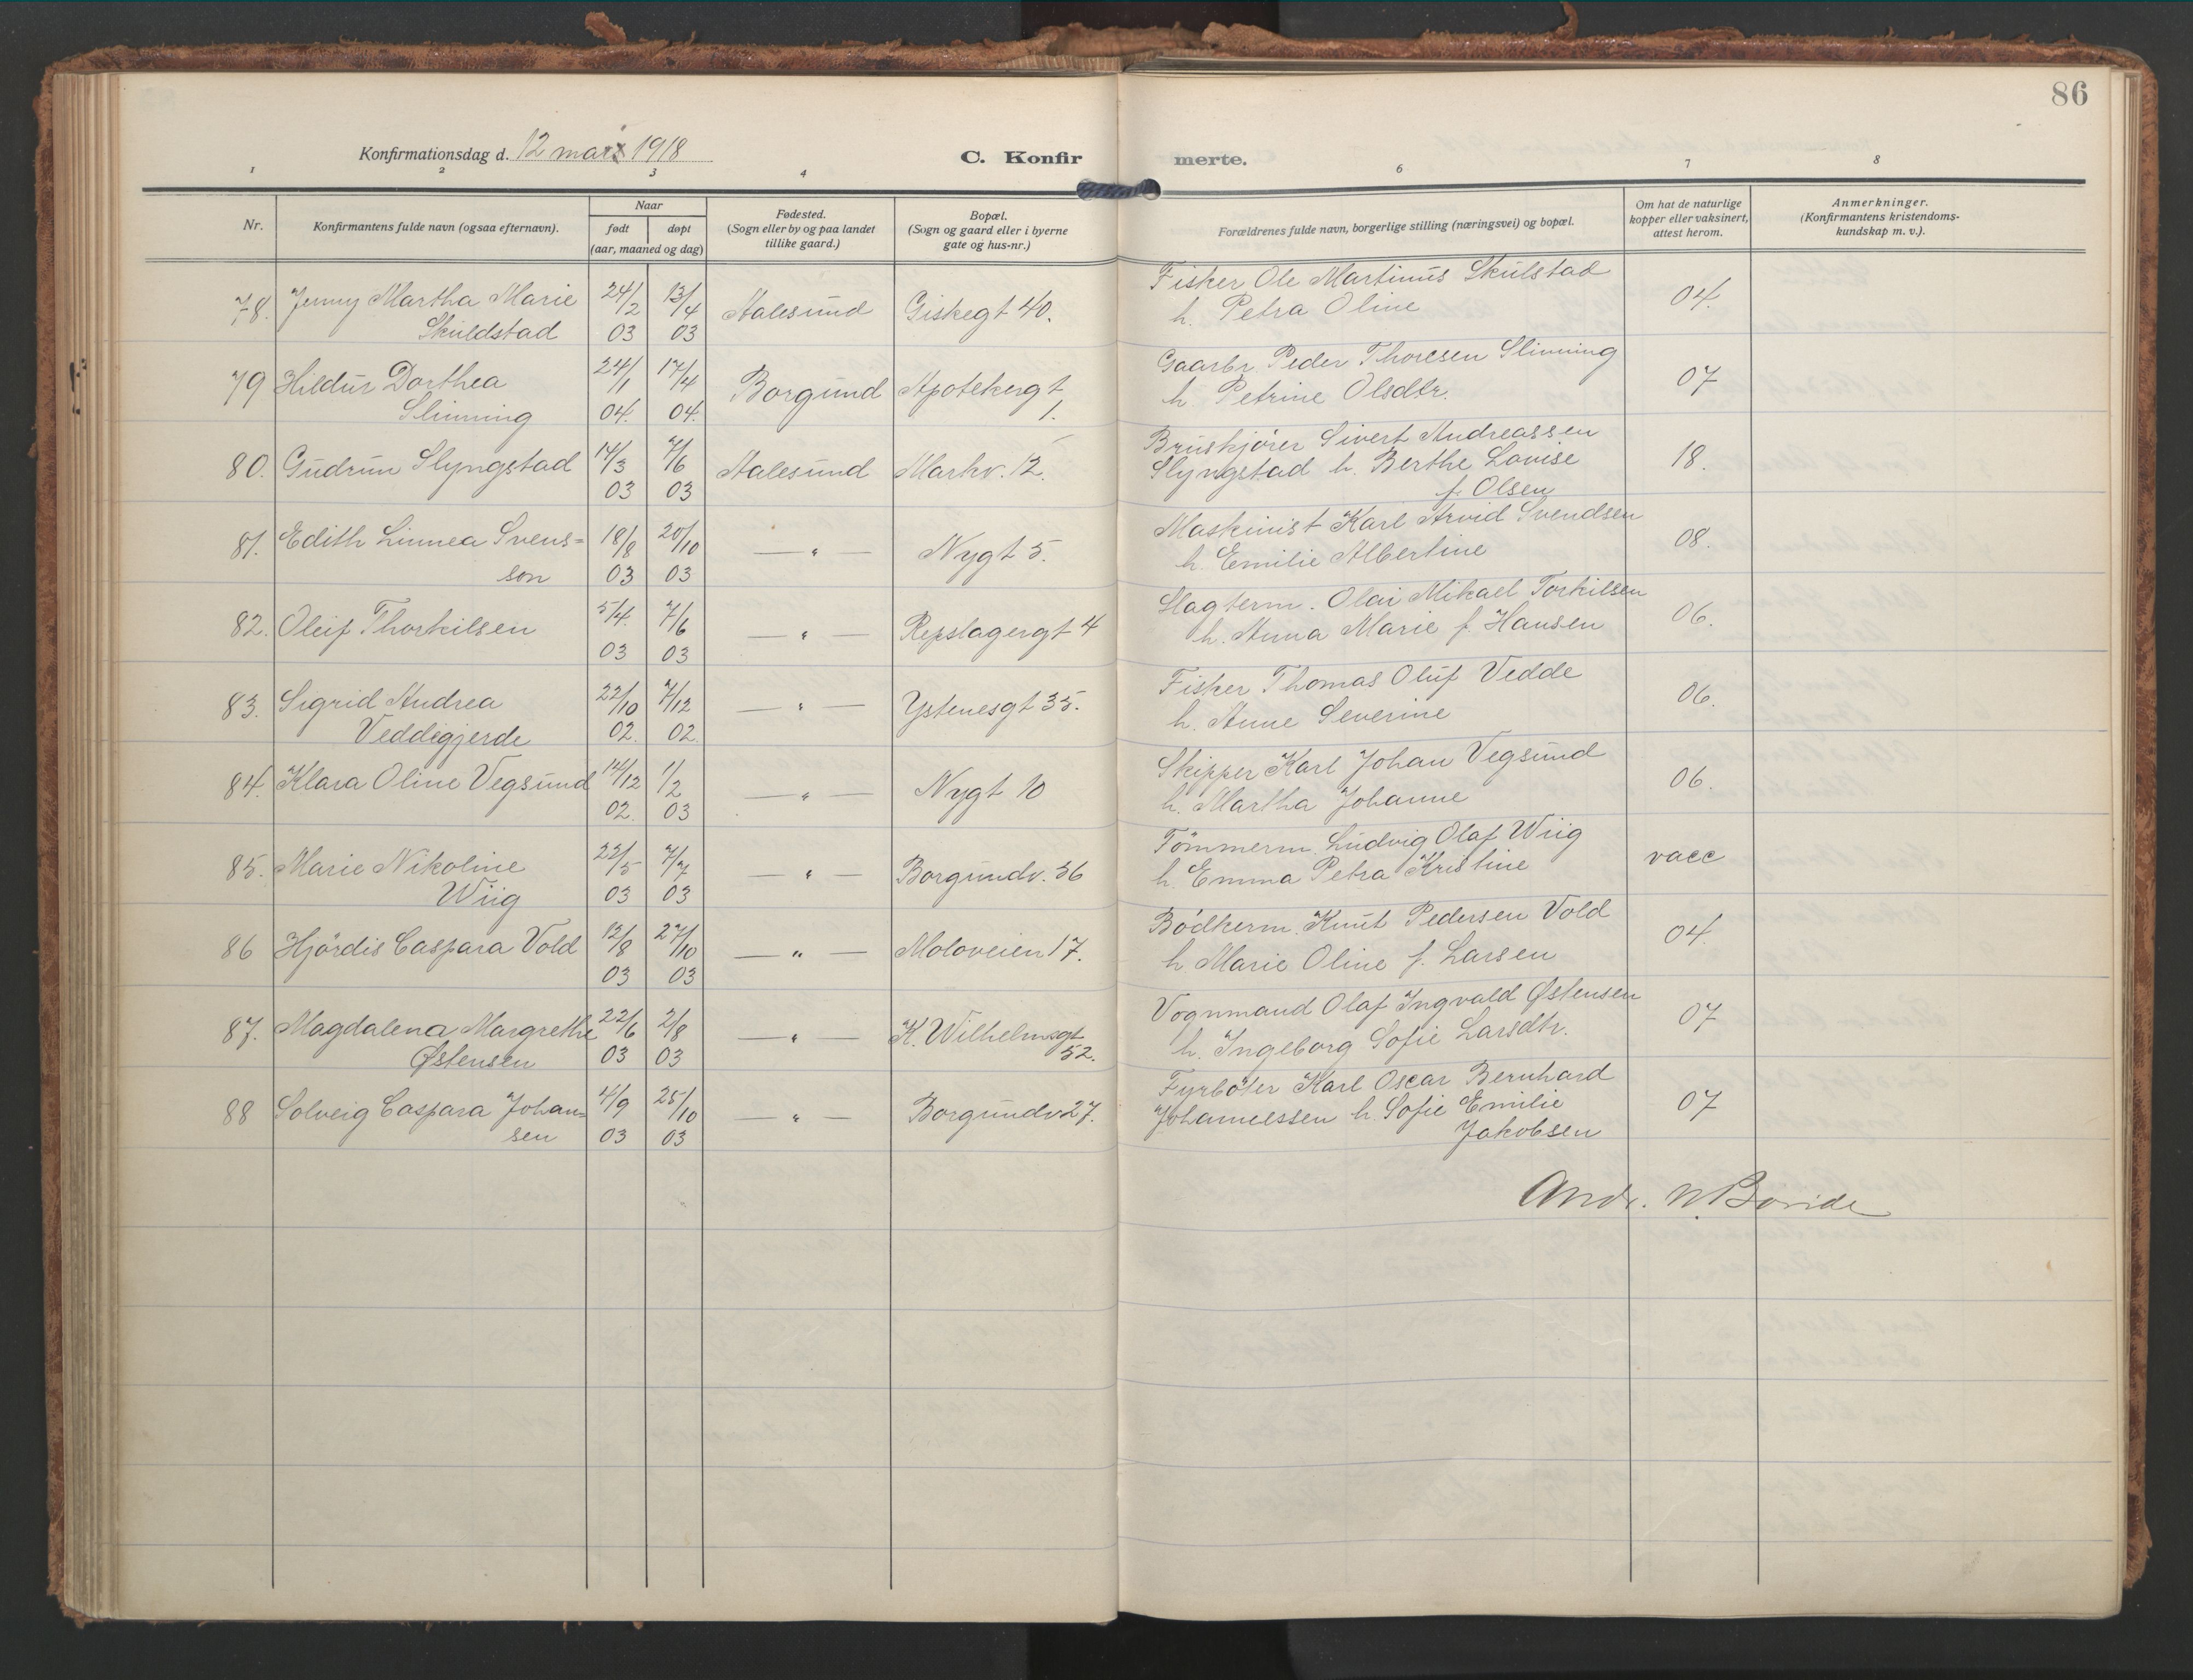 86
Konfirmationsdag d. 12 mai 1918
C. Konfirmerte.
1 2 3 4 6 7 8
Nr.
Konfirmantens fulde navn (ogsaa efternavn).
Naar
født døpt
(aar, maaned og dag)
Fødested.
(Sogn eller by og paa landet
tillike gaard.)
Bopæl.
(Sogn og gaard eller i byerne
gate og hus-nr.)
Forældrenes fulde navn, borgerlige stilling (næringsvei) og bopæl.
Om hat de naturlige
kopper eller vaksinert,
attest herom.
Anmerkninger.
(Konfirmantens kristendoms-
kundskap m. v.).
78. Jenny Martha Marie 24/2 13/4 Aalesund Giskegt 40. Fisker Ole Martinus Skulstad 04.
Skuldstad 03 03 h. Petra Oline
79 Hildur Dorthea 24/1 17/4 Borgund Apotekergt Gaarbr. Peder Thoresen Slinning 07
Slinning 04. 04. 1. h. Petrine Olsdtr.
80. Gudrun Slyngstad 14/3 7/6 Aalesund Markv. 12. Bruskjører Sivert Andreassen 18.
03 03 Slyngstad h. Berthe Lovise
f. Olsen
81. Edith Linnea Svens= 18/8 20/10 — " — Nygt 5. Maskinist Karl Arvid Svendsen 08.
son 03 03 h. Emilie Albertine
82. Oleif Thorkilsen 5/4. 7/6 — " — Repslagergt 4 Slagterm. Olai Mikael Torkilsen 06.
03 03 h. Anna Marie f. Hansen
83. Sigrid Andrea 22/10 7/12 — " — Ystenesgt 35. Fisker Thomas Oluf Vedde 06.
Veddegjerde 02. 02. h. Anne Severine
84. Klara Oline Vegsund 14/12 1/2 — " — Nygt 10 Skipper Karl Johan Vegsund 06.
02. 03 h. Martha Johanne
85. Marie Nikoline 22/5 7/7 — " — Borgundv. 36 Tömmerm. Ludvig Olaf Wiig vacc
Wiig 03 03 h. Emma Petra Kristine
86 Hjördis Caspara Vold 12/8 27/10 — " — Moloveien 17. Bödkerm. Knut Pedersen Vold 04.
03 03 h. Marie Oline f. Larsen
87. Magdalena Margrethe 22/6 2/8 — " — K. Wilhelmsgt Vognmand Olaf Ingvald Østensen 07
Østensen 03 03 52. h. Ingeborg Sofie Larsdtr.
88 Solveig Caspara Johan= 4/9 25/10 — " — Borgundv 27. Fyrböter Karl Oscar Bernhard 07
sen 03 03 Johannessen h. Sofie Emilie
Jakobsen
Andr.